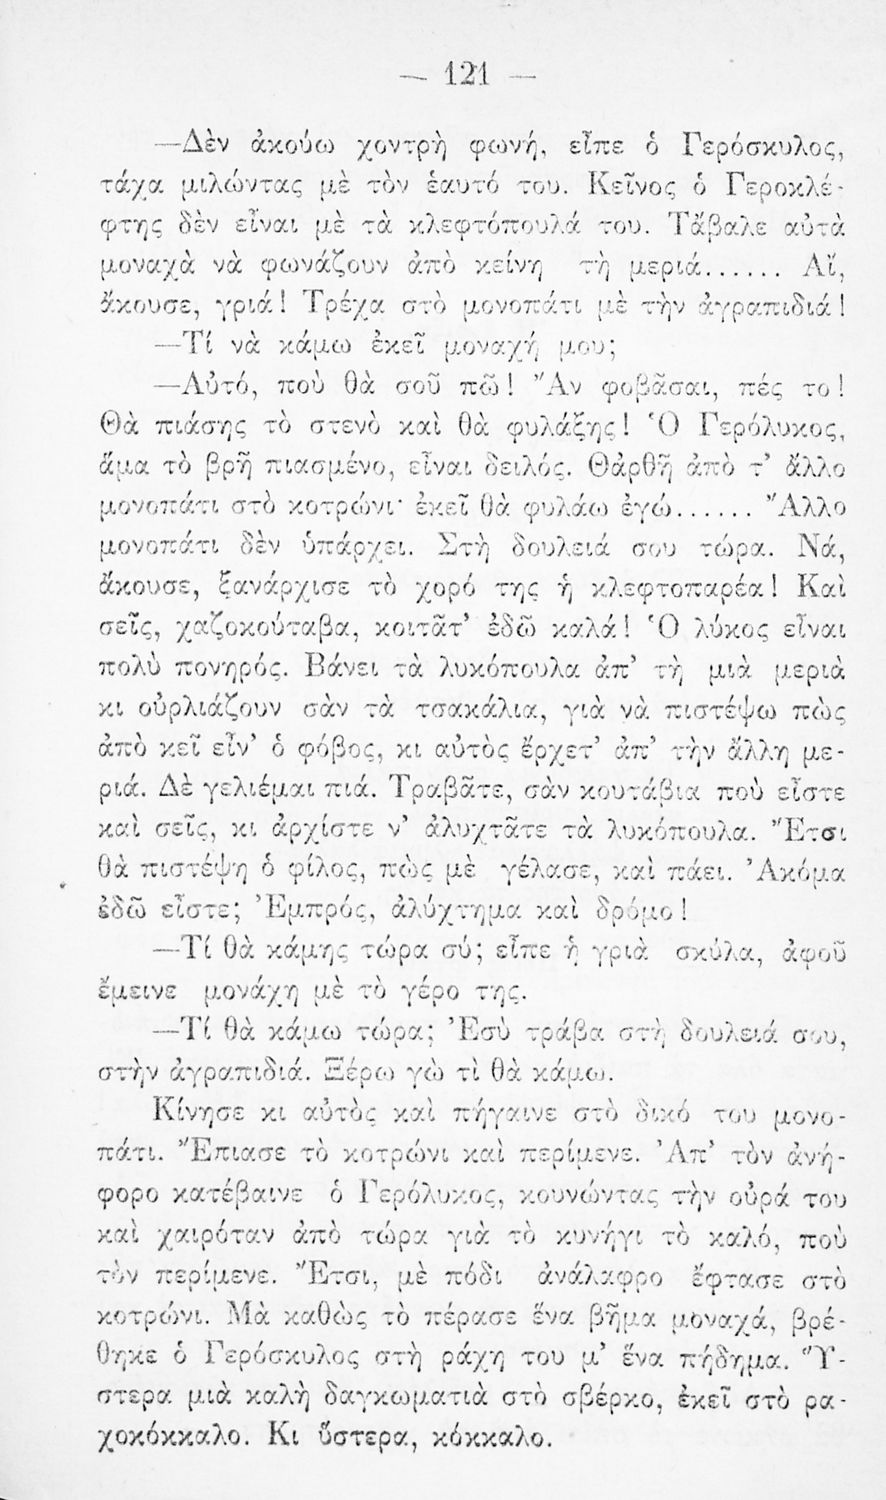 — 121 —
—Δὲν ἀκούω χοντρὴ φωνή, εἶπε ὁ Γερόσκυλος,
τάχα μιλώντας μὲ τὸν ἑαυτό του. Κεῖνος ὁ Γεροκλέ-
φτης δὲν εἶναι μὲ τὰ κλεφτόπουλά του. Τἄβαλε αὐτὰ
μοναχὰ νὰ φωνάζουν ἀπὸ κείνη τὴ μεριά...... Αἴ,
ἄκουσε, γριά! Τρέχα στὸ μονοπάτι μὲ τὴν ἀγραπιδιά!
—Τί νὰ κάμω ἐκεῖ μοναχή μου;
—Αὐτό, ποὺ θὰ σοῦ πῶ! Ἂν φοβᾶσαι, πές το!
Θὰ πιάσης τὸ στενὸ καὶ θὰ φυλάξης! Ὁ Γερόλυκος,
ἅμα τὸ βρῆ πιασμένο, εἶναι δειλός. Θἀρθῆ ἀπὸ τ' ἄλλο
μονοπάτι στὸ κοτρώνι· ἐκεῖ θὰ φυλάω ἐγώ...... Ἄλλο
μονοπάτι δὲν ὑπάρχει. Στὴ δουλειά σου τώρα. Νά,
ἄκουσε, ξανάρχισε τὸ χορό της ἡ κλεφτοπαρέα! Καὶ
σεῖς, χαζοκούταβα, κοιτᾶτ' ἐδῶ καλά! Ὁ λύκος εἶναι
πολὺ πονηρός. Βάνει τὰ λυκόπουλα ἀπ' τὴ μιὰ μεριὰ
κι οὐρλιάζουν σὰν τὰ τσακάλια, γιὰ νὰ πιστέψω πὼς
ἀπὸ κεῖ εἶν' ὁ φόβος, κι αὐτὸς ἔρχετ' ἀπ' τὴν ἄλλη με-
ριά. Δὲ γελιέμαι πιά. Τραβᾶτε, σὰν κουτάβια ποὺ εἶστε
καὶ σεῖς, κι ἀρχίστε ν' ἀλυχτᾶτε τὰ λυκόπουλα. Ἔτσι
θὰ πιστέψη ὁ φίλος, πὼς μὲ γέλασε, καὶ πάει. Ἀκόμα
ἐδῶ εἶστε; Ἐμπρός, ἀλύχτημα καὶ δρόμο!
—Τί θὰ κάμης τώρα σύ; εἶπε ἡ γριὰ σκύλα, ἀφοῦ
ἔμεινε μονάχη μὲ τὸ γέρο της.
—Τί θὰ κάμω τώρα; Ἐσὺ τράβα στὴ δουλειά σου,
στὴν ἀγραπιδιά. Ξέρω γὼ τὶ θὰ κάμω.
Κίνησε κι αὐτὸς καὶ πήγαινε στὸ δικό του μονο-
πάτι. Ἔπιασε τὸ κοτρώνι καὶ περίμενε. Ἀπ' τὸν ἀνή-
φορο κατέβαινε ὁ Γερόλυκος, κουνώντας τὴν οὐρά του
καὶ χαιρόταν ἀπὸ τώρα γιὰ τὸ κυνήγι τὸ καλό, ποὺ
τὸν περίμενε. Ἔτσι, μὲ πόδι ἀνάλαφρο ἔφτασε στὸ
κοτρώνι. Μὰ καθὼς τὸ πέρασε ἕνα βῆμα μοναχά, βρέ-
θηκε ὁ Γερόσκυλος στὴ ράχη του μ' ἕνα πήδημα. Ὕ-
στερα μιὰ καλὴ δαγκωματιὰ στὸ σβέρκο, ἐκεῖ στὸ ρα-
χοκόκκαλο. Κι ὕστερα, κόκκαλο.